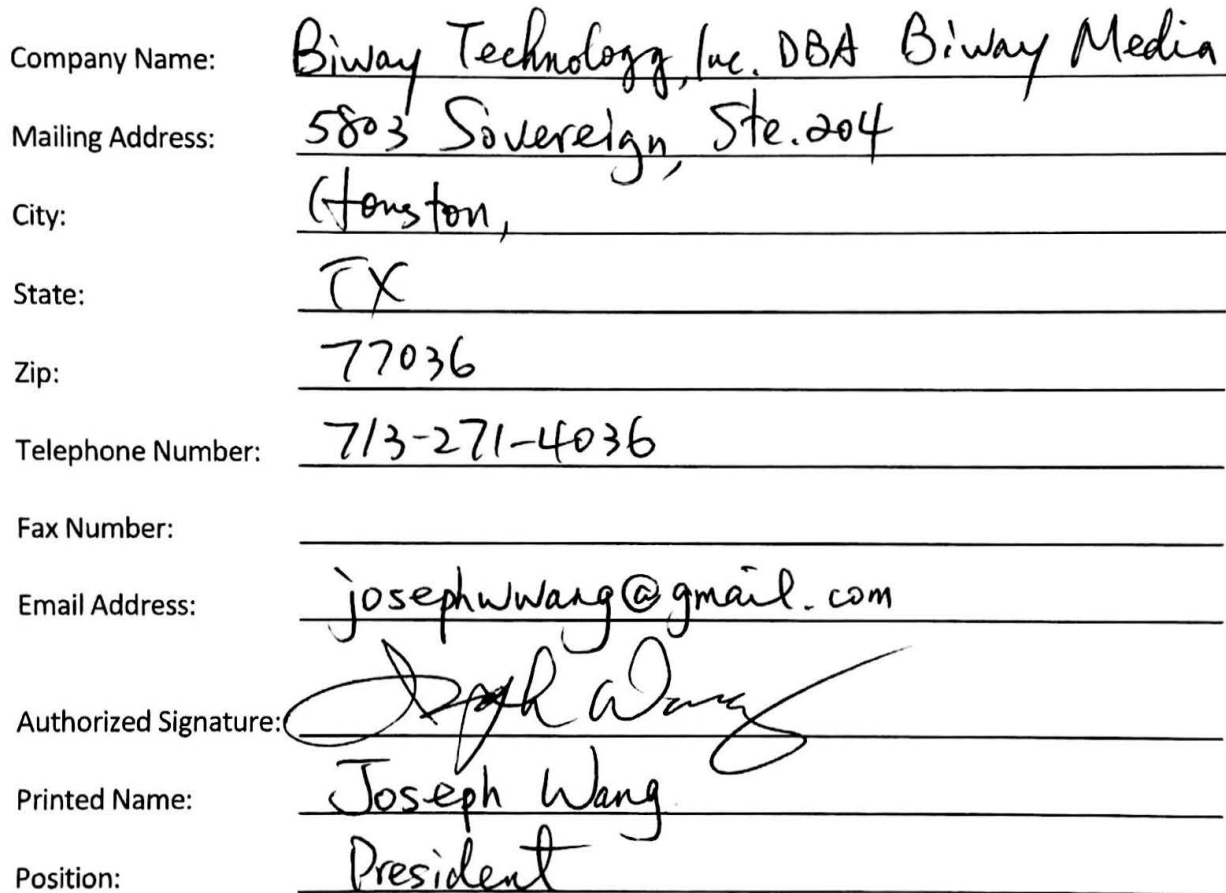 Company Name: Biway Technology, Inc. DBA Biway Media
Mailing Address: 5803 Sovereign, Ste. 204
City: Houston,
State: TX
Zip: 77036
Telephone Number: 713-271-4036
Fax Number:
Email Address: josephwwang@gmail.com
Authorized Signature: Joseph Wang
Printed Name: Joseph Wang
Position: President